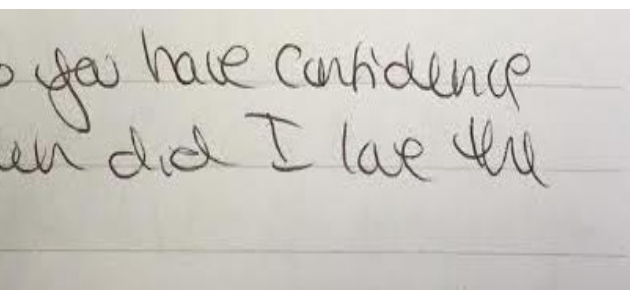 o you have confidence
en did I love the